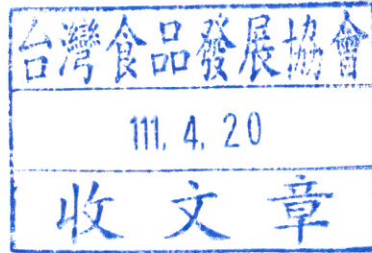 台灣食品發展協會
111. 4. 20
收文章